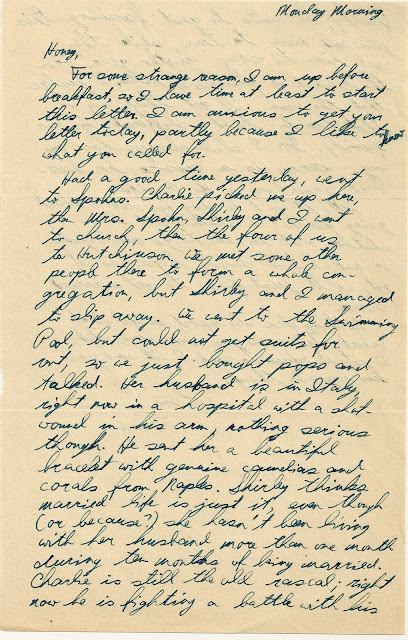 Monday Morning.
Honey,
For some strange reason, I am up before
breakfast, so I have time at least to start
this letter. I am anxious to get your
letter today, partly because I like to know
what you called for.
Had a good time yesterday, went
to Spohns. Charlie picked me up here,
then Mrs. Spohn, Shirley and I went
to church, then the four of us
to Hutchinson. We met some other
people there to form a whole con-
gregation, but Shirley and I managed
to slip away. We went to the Swimming
Pool, but could not get suits for
rent, so we just bought pops and
talked. Her husband is in Italy,
right now in a hospital with a shot-
wound in his arm, nothing serious
though. He sent her a beautiful
bracelet with genuine and
corals from Naples. Shirley thinks
married life is just it, even though
(or because?) she hasn't been living
with her husband more than one month
during ten months of being married.
Charlie is still the old rascal; right
now he is fighting a battle with his